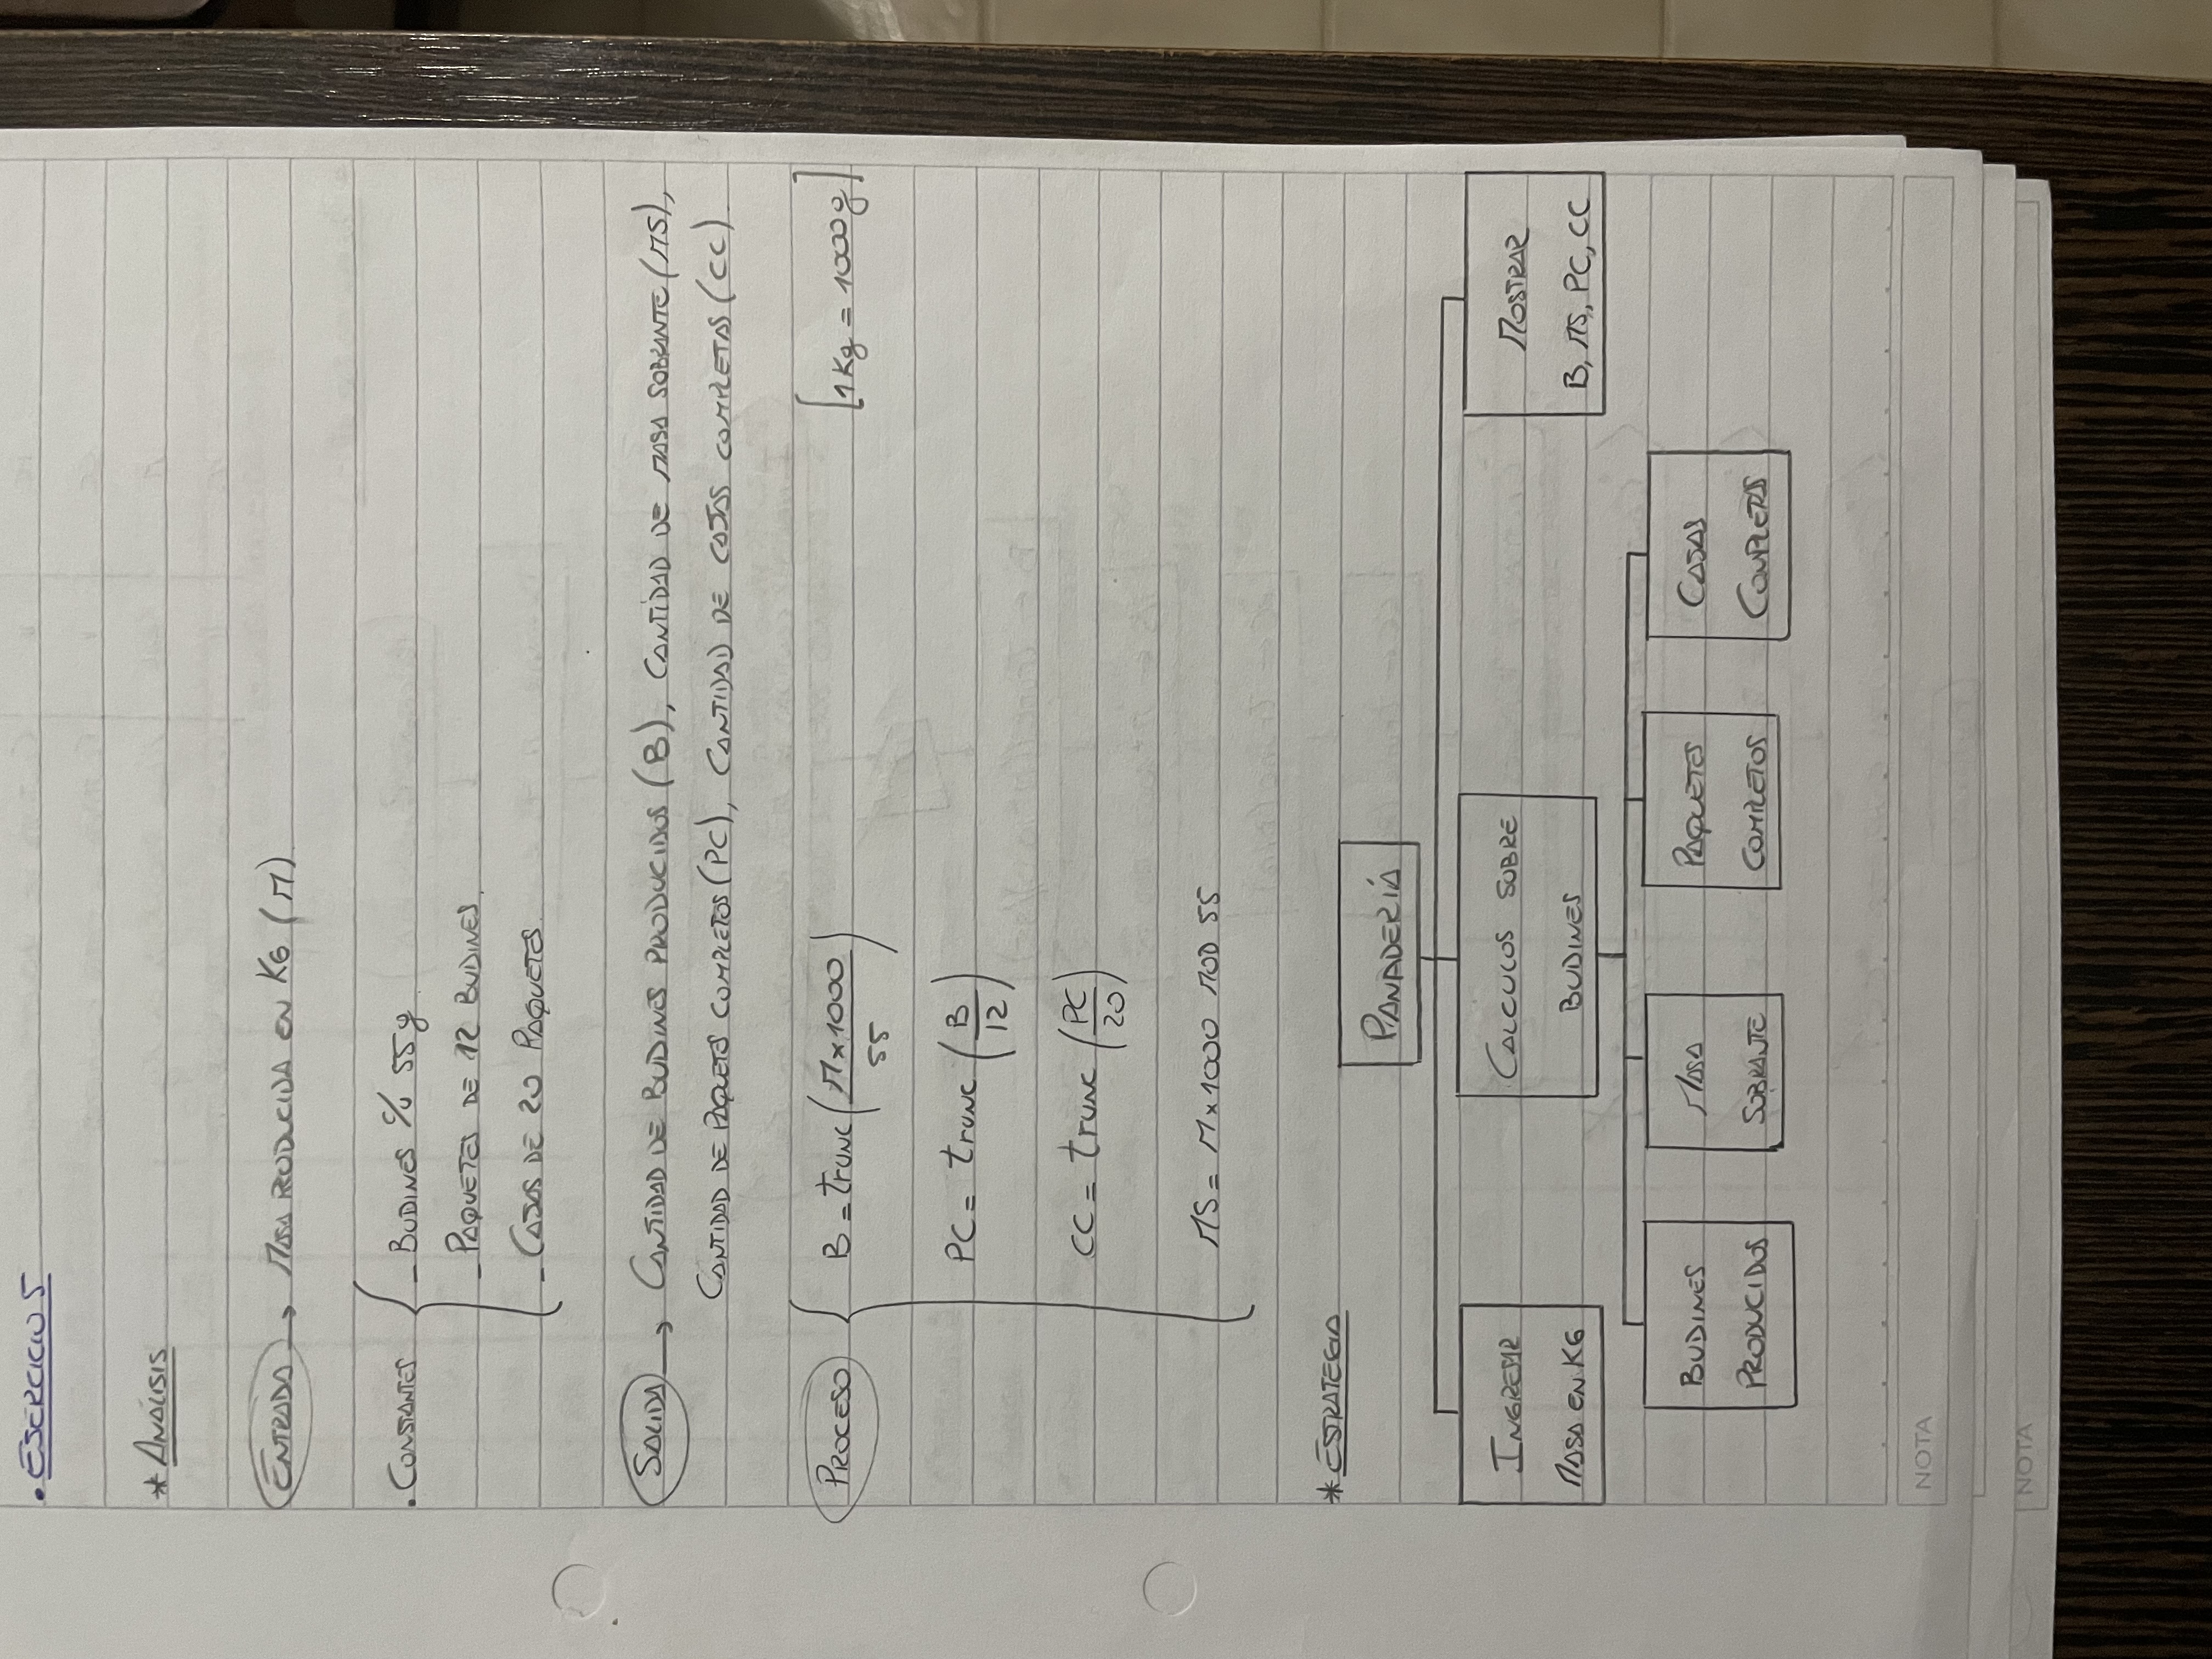 . EJERCICIO 5
* ANÁLISIS
ENTRADA → MASA PRODUCIDA EN KG (M)
. CONSTANTES { - BUDINES c/u 55g.
- PAQUETES DE 12 BUDINES.
- CAJAS DE 20 PAQUETES.
SALIDA → CANTIDAD DE BUDINES PRODUCIDOS (B), CANTIDAD DE MASA SOBRANTE (MS),
CANTIDAD DE PAQUETES COMPLETOS (PC), CANTIDAD DE CAJAS COMPLETAS (CC).
PROCESO { B = trunc (M x 1000 / 55) [1 Kg = 1000 g]
PC = trunc (B / 12)
CC = trunc (PC / 20)
MS = M x 1000 MOD 55
* ESTRATEGIA
PANADERÍA
INGRESAR
MASA EN KG
CALCULOS SOBRE
BUDINES
MOSTRAR
B, MS, PC, CC
BUDINES
PRODUCIDOS
MASA
SOBRANTE
PAQUETES
COMPLETOS
CAJAS
COMPLETAS
NOTA
NOTA